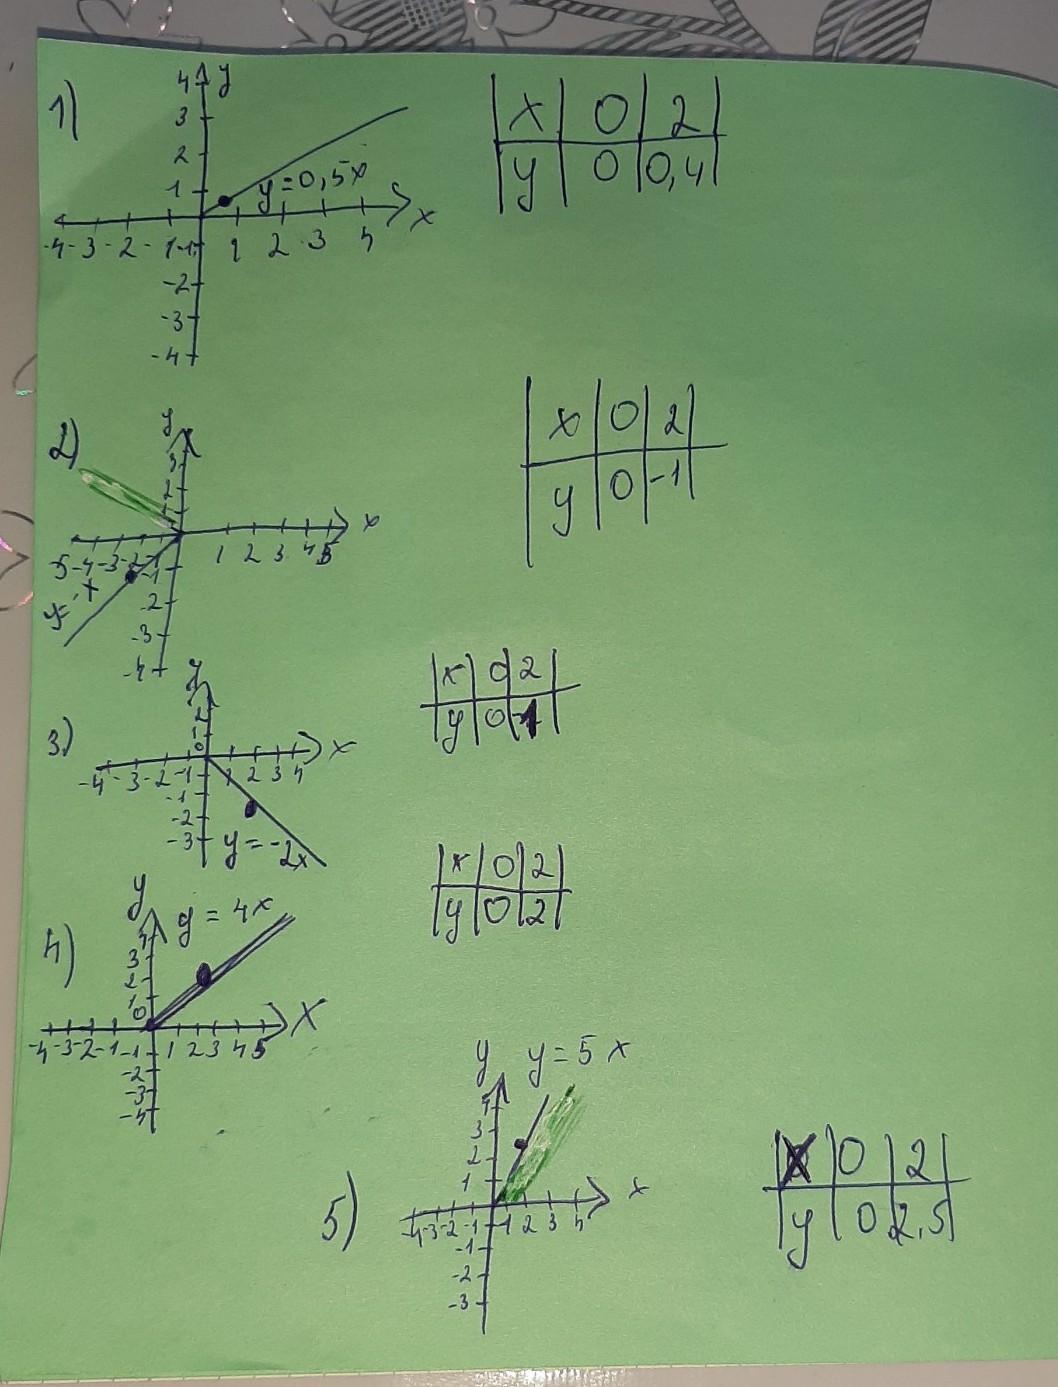 1)
y
4
3
2
1
y=0,5x
-4 -3 -2 -1 -1 1 2 3 4 x
-2
-3
-4
x 0 2
y 0 0,4
2)
y
3
2
1
x
-5 -4 -3 -2 -1 1 2 3 4 5
-1
y=-x
-2
-3
-4
x 0 2
y 0 -1
3)
y
2
1
0
x
-4 -3 -2 -1 1 2 3 4
-1
-2
-3
y=-2x
x 0 2
y 0 -1
4)
y
y = 4x
4
3
2
1
0
X
-4 -3 -2 -1 -1 1 2 3 4 5
-2
-3
-4
x 0 2
y 0 2
5)
y y = 5x
4
3
2
1
x
-4 -3 -2 -1 1 2 3 4
-1
-2
-3
x 0 2
y 0 2,5